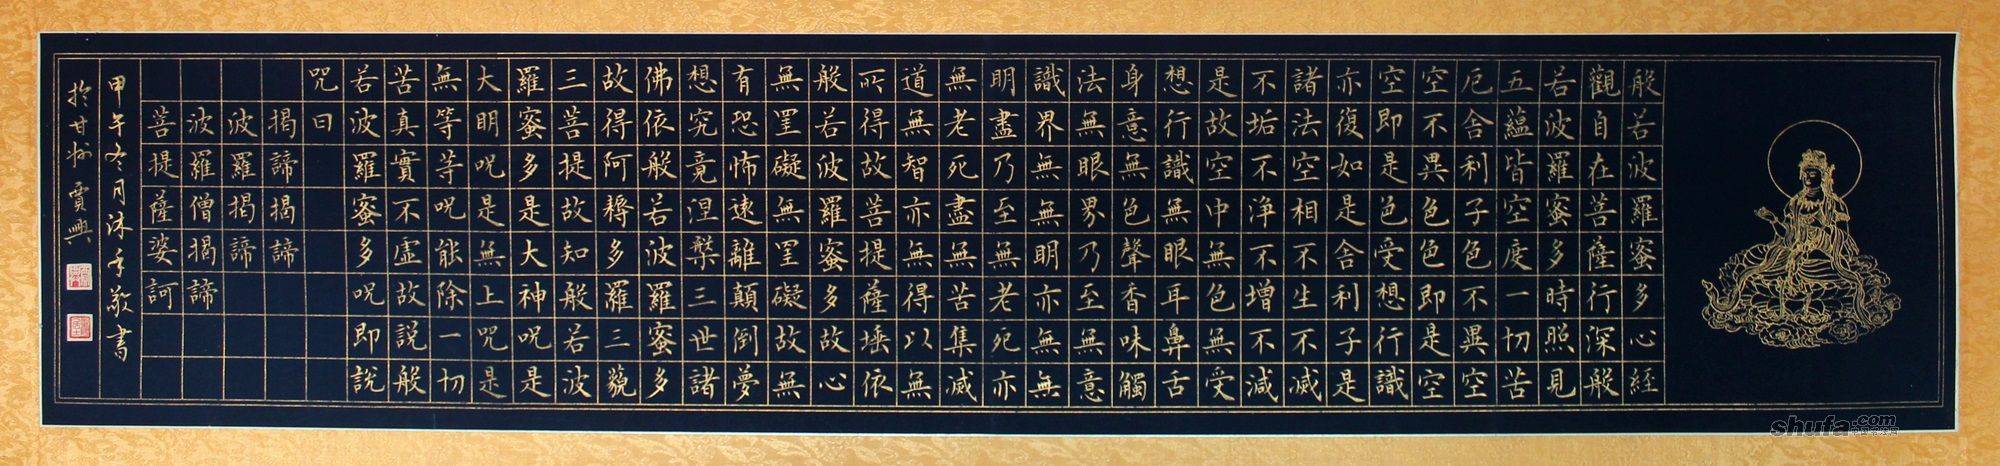 般若波羅蜜多心經
觀自在菩薩行深般
若波羅蜜多時照見
五蘊皆空度一切苦
厄舍利子色不異空
空不異色色即是空
空即是色受想行識
亦復如是舍利子是
諸法空相不生不滅
不垢不淨不增不減
是故空中無色無受
想行識無眼耳鼻舌
身意無色聲香味觸
法無眼界乃至無意
識界無無明亦無無
明盡乃至無老死亦
無老死盡無苦集滅
道無智亦無得以無
所得故菩提薩埵依
般若波羅蜜多故心
無罣礙無罣礙故無
有恐怖遠離顛倒夢
想究竟涅槃三世諸
佛依般若波羅蜜多
故得阿耨多羅三藐
三菩提故知般若波
羅蜜多是大神呪是
大明呪是無上呪是
無等等呪能除一切
苦真實不虛故說般
若波羅蜜多呪即說
呪曰
揭諦揭諦
波羅揭諦
波羅僧揭諦
菩提薩婆訶
甲午冬月沐手敬書
於甘州賈興
shufa.com